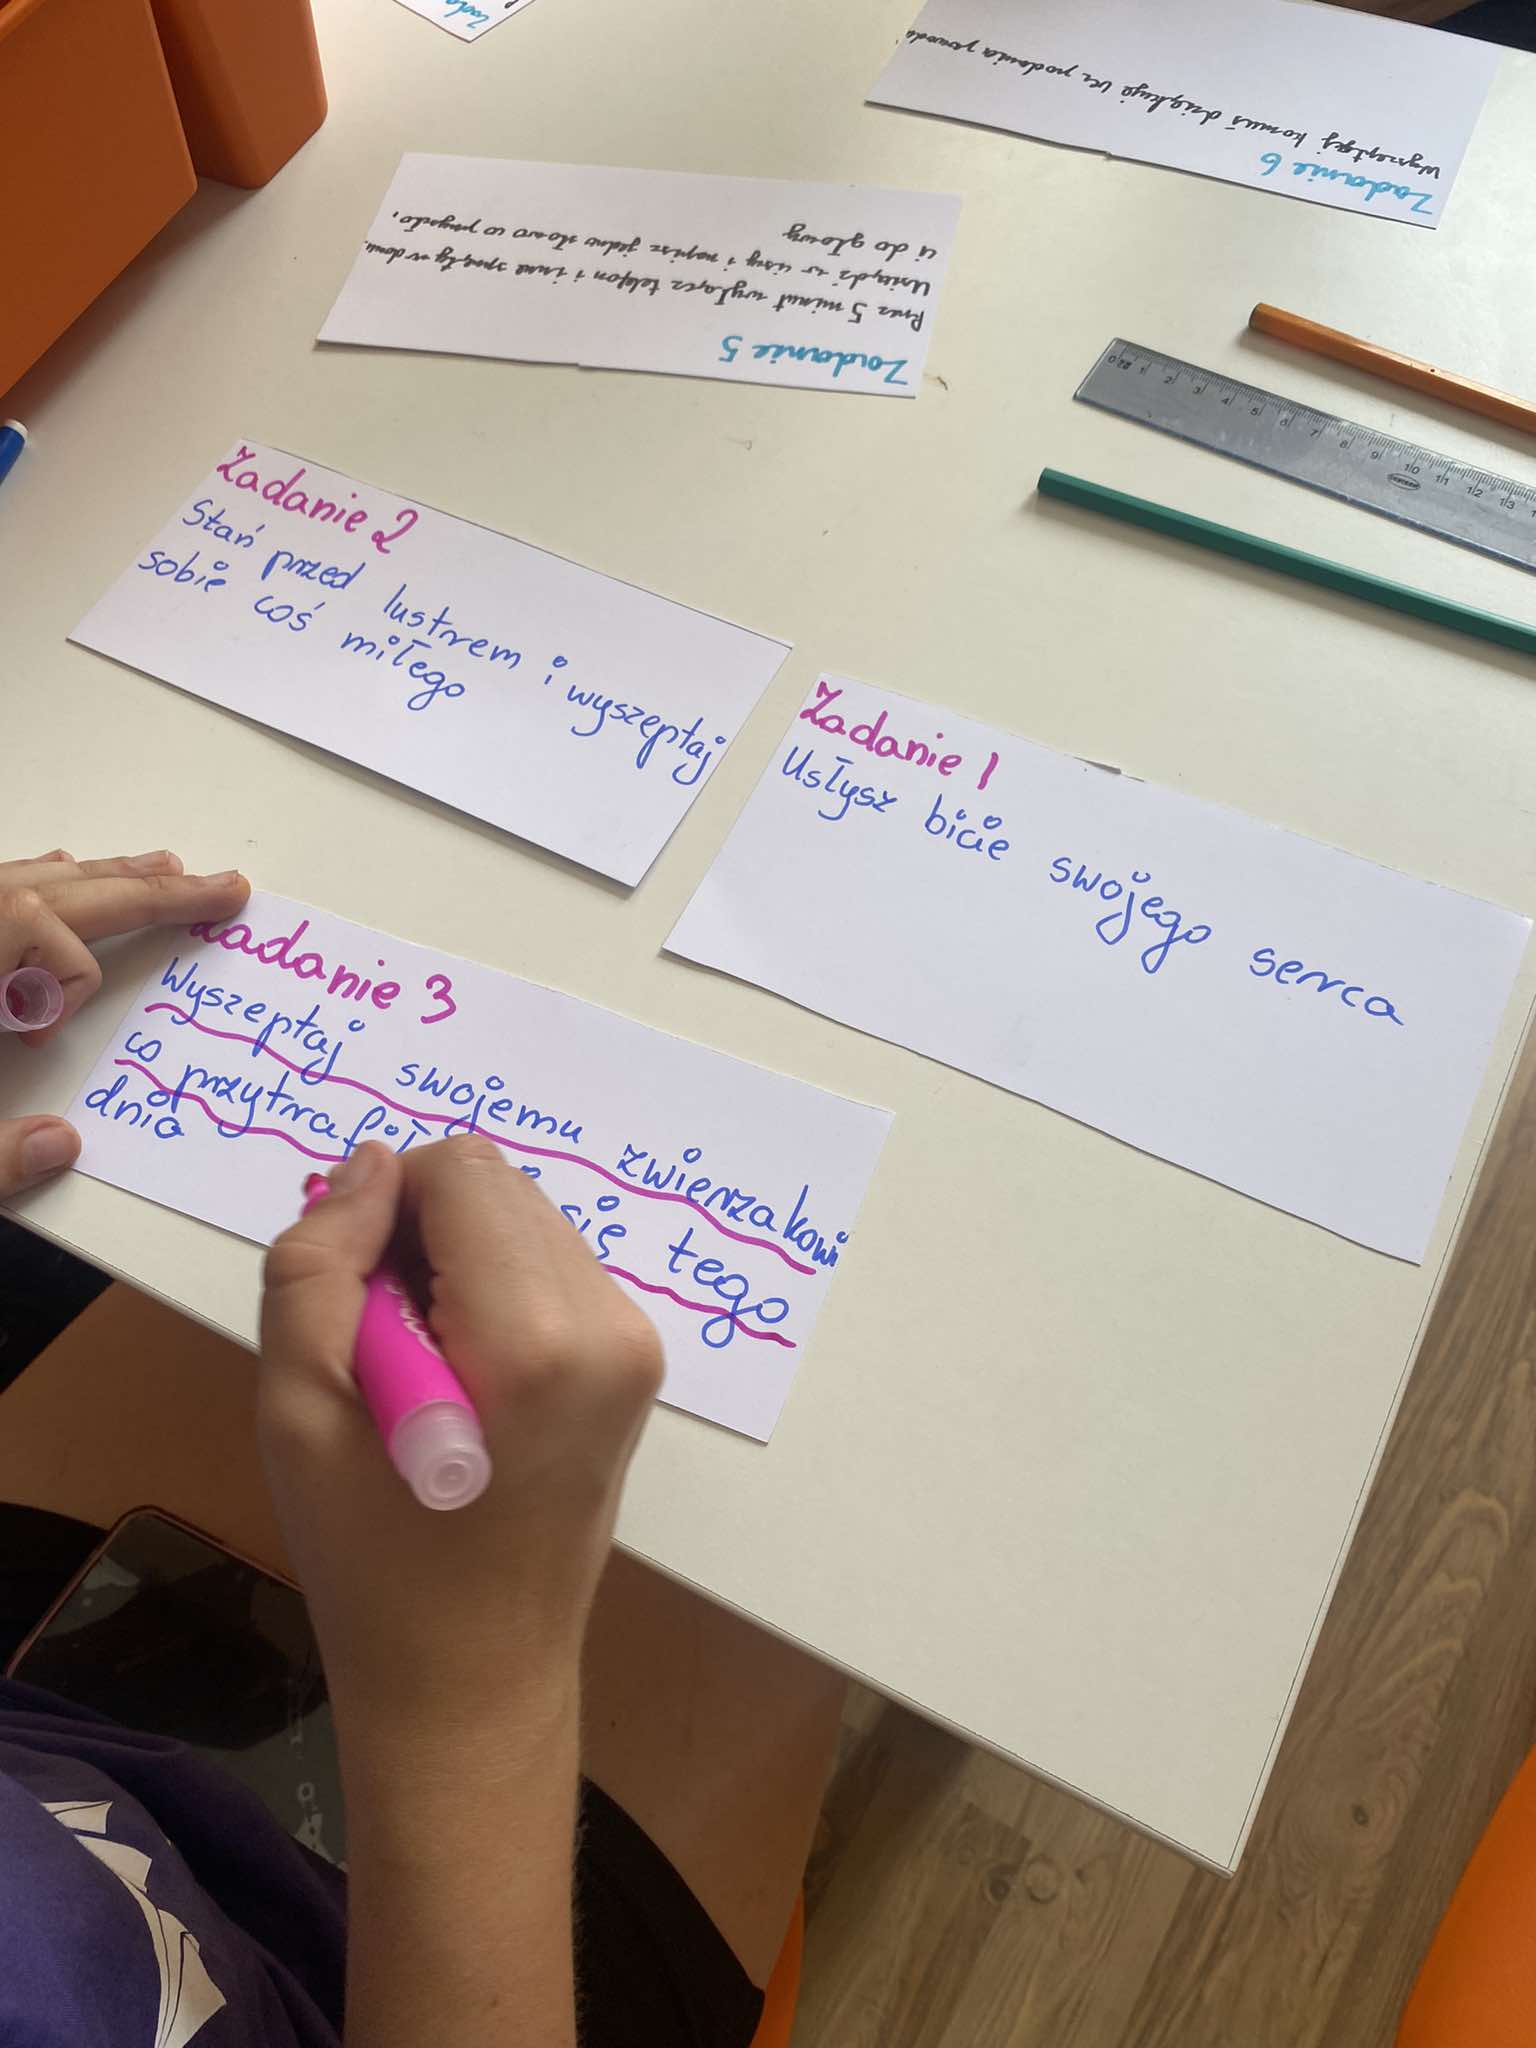 Zadanie 6
Wyszeptaj komuś dziękuję bez podania
Zadanie 5
Przez 5 minut wyłącz telefon i inne sprzęty w domu.
Usiądź w ciszy i napisz jedno słowo co przyszło,
ci do głowy
Zadanie 2
Stań przed lustrem i wyszeptaj
sobie coś miłego
Zadanie 1
Usłysz bicie swojego serca
Zadanie 3
Wyszeptaj swojemu zwierzakowi
co się tego
dnia
0 1 2 3 4 5 6 7 8 9 10 11 12 13